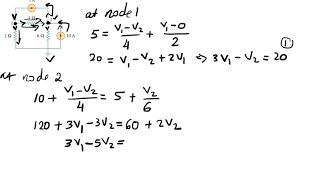 at node 1
5 = (v₁-v₂)/4 + (v₁-0)/2
20 = v₁-v₂ + 2v₁ ⇒ 3v₁-v₂ = 20 ①
at node 2
10 + (v₁-v₂)/4 = 5 + v₂/6
120 + 3v₁-3v₂ = 60 + 2v₂
3v₁-5v₂ =